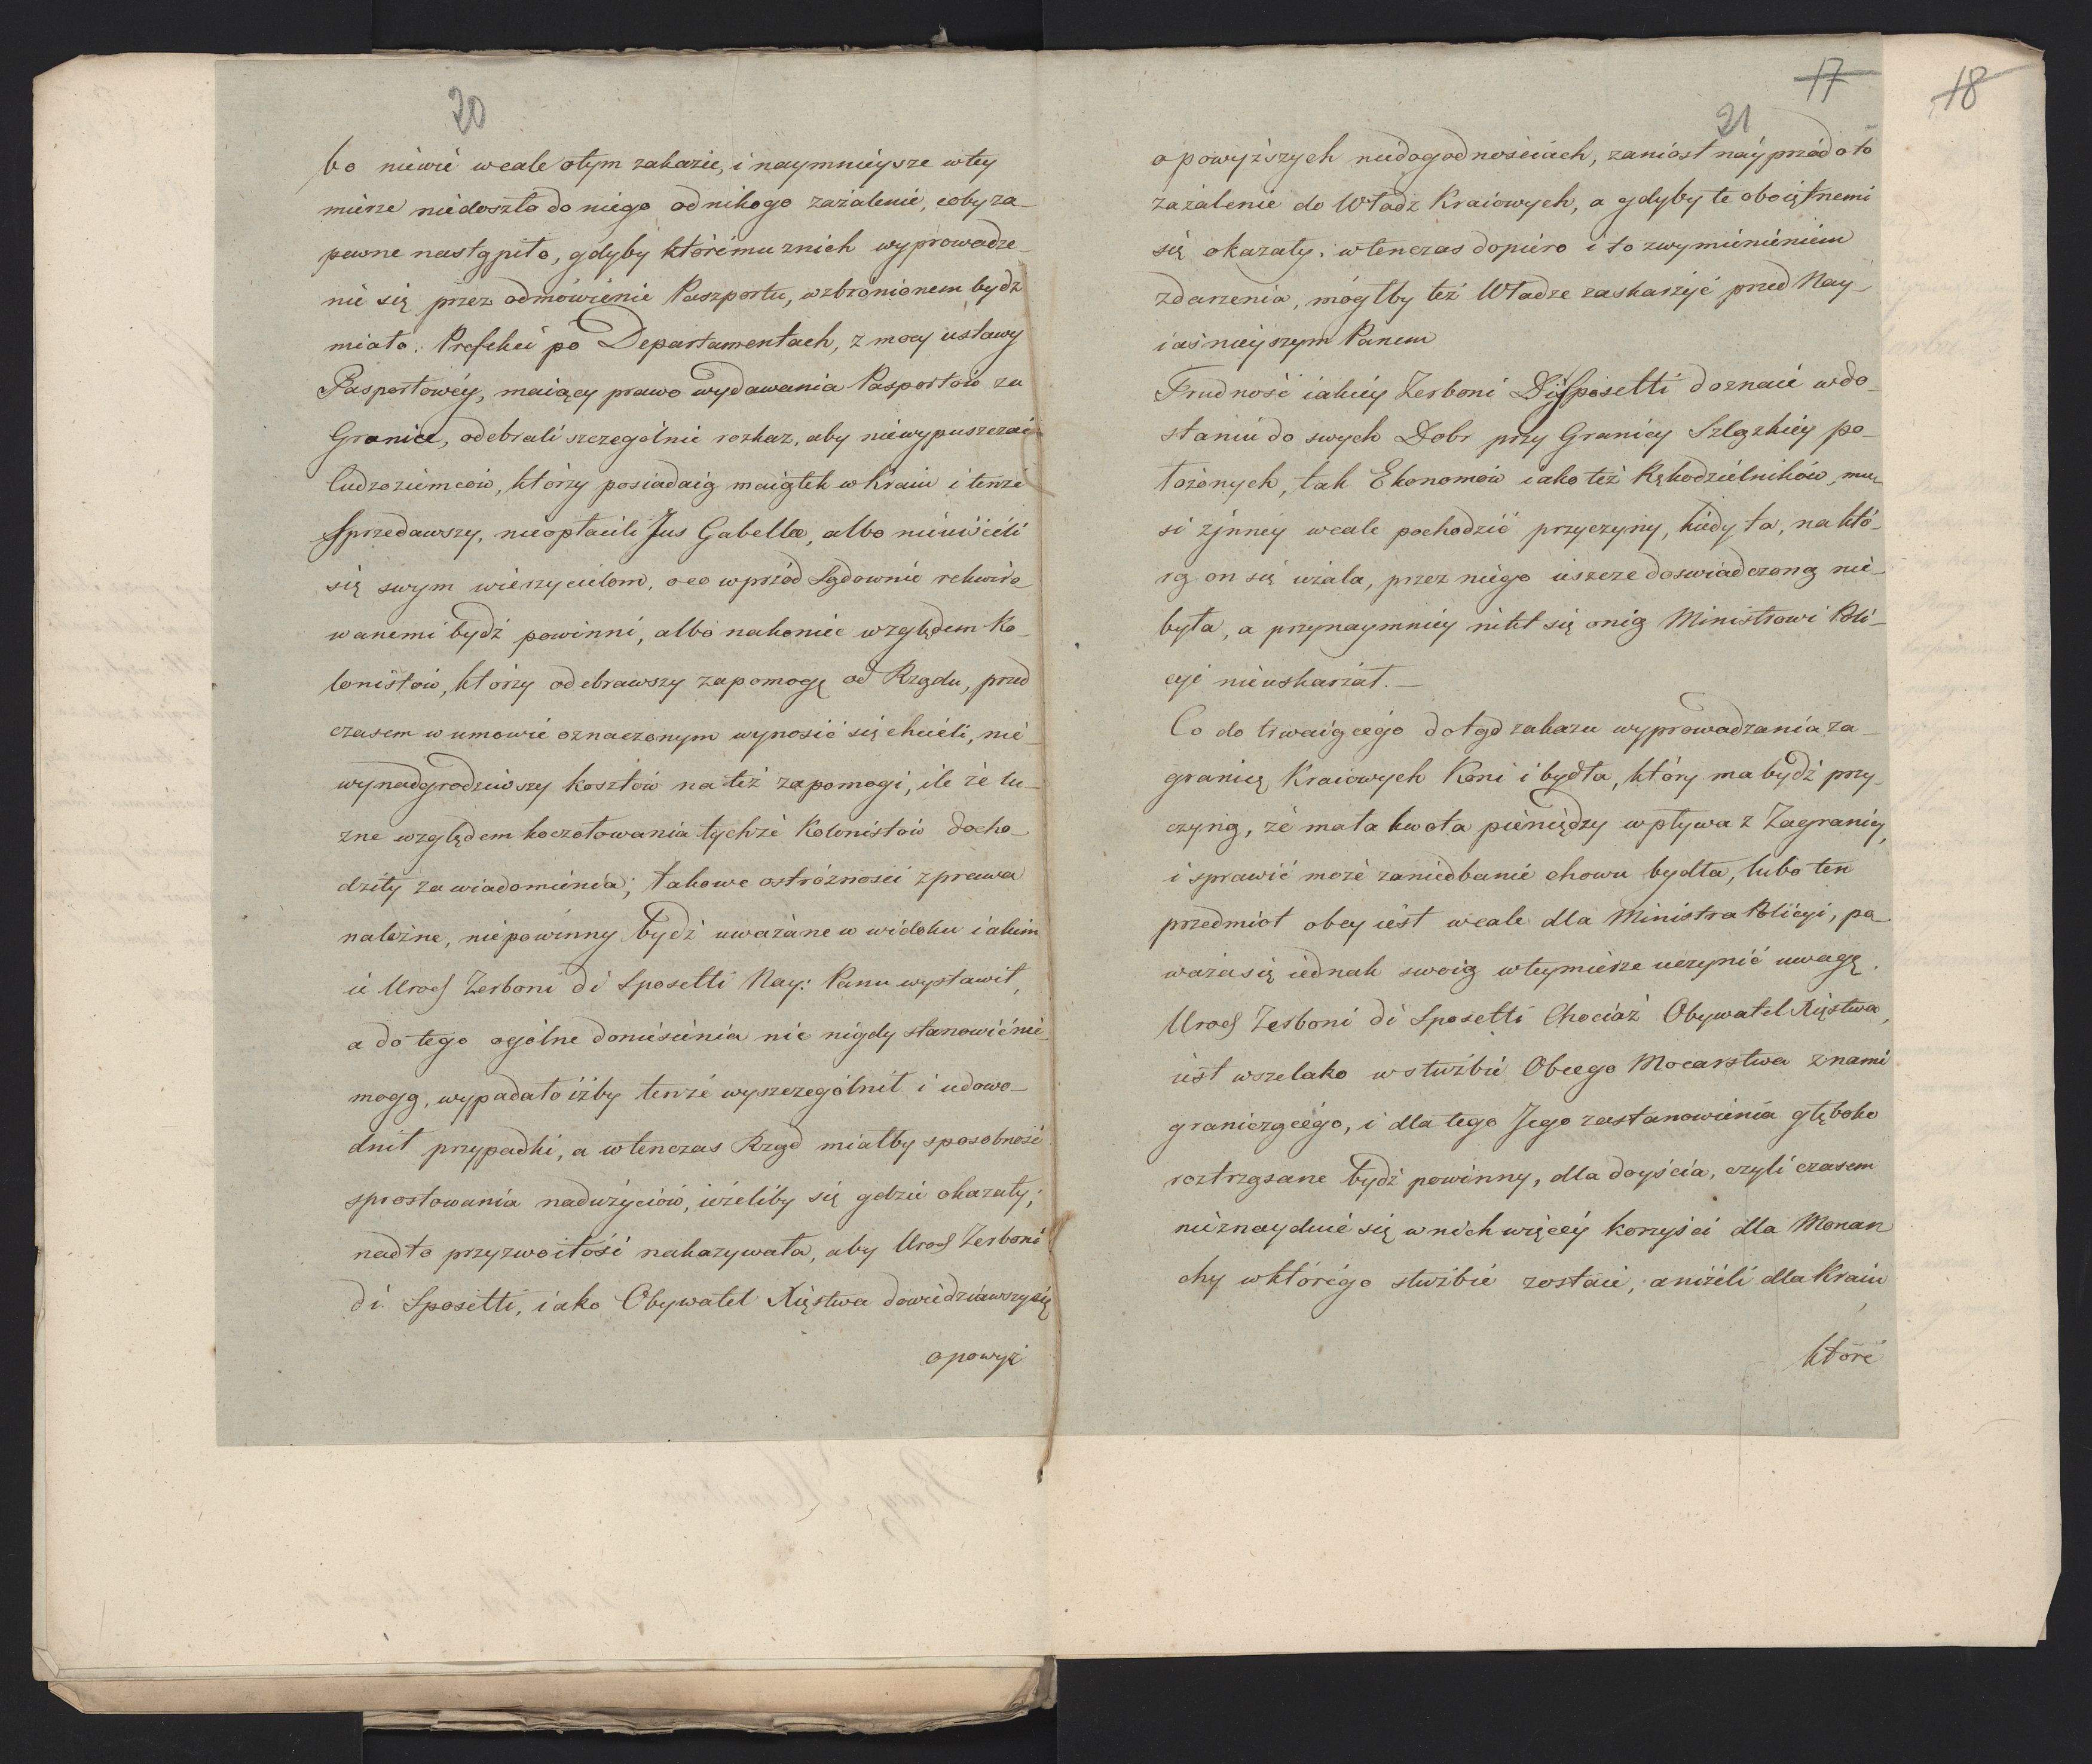 20
bo niewie wcale o tym zakazie, i naymnieysze w tey
mierze niedoszło do niego od nikogo zażalenie, coby za_
pewne nastąpiło, gdyby któremu z nich wyprowadze_
nie się przez odmówienie Paszportu, wzbronionem bydź
miało. Prefekci po Departamentach, z mocy ustawy
Pasportowéy, maiący prawo wydawania Pasportów za
Granice, odebrali szczególnie rozkaz, aby niewypuszczać
Cudzoziemców, którzy posiadaią maiątek w kraiu i tenże
sprzedawszy, nieopłacili Jus Gabellæ, albo nieuiścili
się swym wierzycielom, o co wprzód Sądownie rekwiro_
wanemi bydź powinni, albo nakoniec względem Ko_
lonistów, którzy odebrawszy zapomogę od Rządu, przed
czasem w umowie oznaczonym wynosić się chcieli, nie_
wynadgrodziwszy kosztów na też zapomogi, ile że lu_
zne względem koczotowania tychże Kolonistów docho_
dziły zawiadomienia; takowe ostróżnosci z prawa
należne, niepowinny bydź uważane w widoku iakim
ie Ur Zerboni di Sposetti Nay: Panu wystawił,
a do tego ogólne doniesienia nic nigdy stanowić nie_
mogą, wypadało iżby tenże wyszczególnił i udowo_
dnił przypadki, a wtenczas Rząd miałby sposobność
sprostowania nadużyciów, ieżeliby się gdzie okazały;
nadto przyzwoitość nakazywała, aby Ur Zerboni
di Sposetti, iako Obywatel Xięstwa dowiedziawszy się
o powyż
17
18
21
o powyższych niedogodnościach, zaniosł nayprzód o to
zażalenie do Władz Kraiowych, a gdyby te oboiętnemi
się okazały, wtenczas dopiero i to z wymienieniem
zdarzenia, mógłby też Władze zaskarżyć przed Nay_
iaśnieyszym Panem
Trudność iakiey Zerboni Di Sposetti doznaie w do_
staniu do swych Dobr przy Granicy Szlązkiey po_
łożonych, tak Ekonomów iako też Rękodzielników, mu_
si z jnney wcale pochodzić przyczyny, kiedy ta, na któ_
rą on się użala, przez niego ieszcze doswiadczoną nie_
była, a przynaymniey nikt się o nią Ministrowi Poli_
cyi nieuskarżał. _
Co do trwaiącego dotąd zakazu wyprowadzania za_
granicę Kraiowych Koni i bydła, który ma bydź przy_
czyną, że mała kwota pieniędzy wpływa z Zagranicy,
i sprawić może zaniedbanie chowu bydła, lubo ten
przedmiot obcy iest wcale dla Ministra Policyi, po_
waża się iednak swoią w tey mierze uczynić uwagę.
Ur Zerboni di Sposetti Chociaż Obywatel Xięstwa,
iest wszelako w służbie Obcego Mocarstwa z nami
graniczącego, i dla tego Jego zastanowienia głęboko
roztrząsane bydź powinny, dla doyścia, czyli czasem
nieznayduie się w nich więcey korzyści dla Monar
chy w którego służbie zostaie, aniżeli dla Kraiu
które